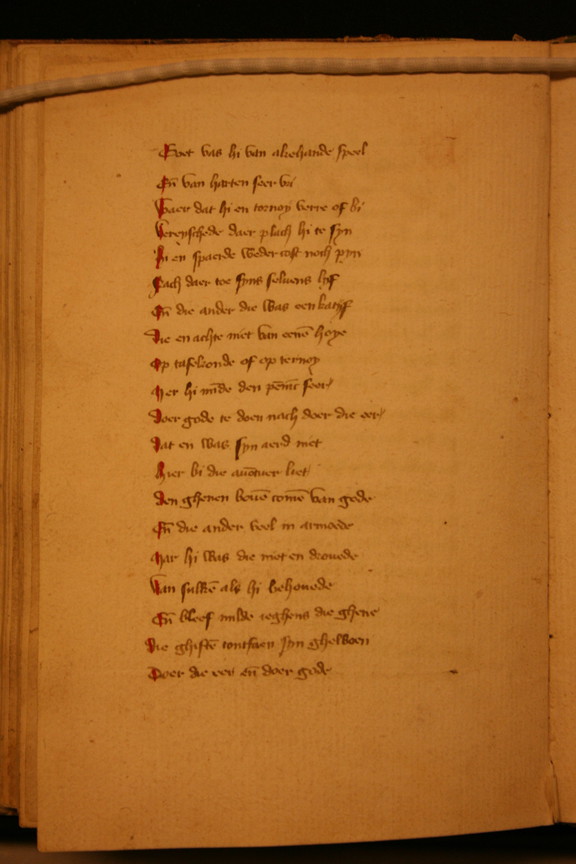 Groet was hi van alrehande speel
Eñ van harten seer vri
Waer dat hi en tornoy verre of bi
Wereyschede daer plach hi te syn
Hi en spaerde weder cost noch pyn
Nach daer toe syns seluens lyf
Eñ die ander die was een katyf
Die en achte niet van eenē hoye
Op tafelronde of op tornoy
Mer hi mīde den pēnīc seer
Doer gode te doen nach doer die eer
Dat en was syn aerd niet
Hier bi die auētuer liet
Den ghenen bouē comē van gode
Eñ die ander veel in armoede
Mar hi was die niet en drouede
Van sulkē als hi behouede
Eñ bleef milde teghens die ghene
Die ghiftē tontfaen syn ghewoen
Doer die eer eñ doer gode